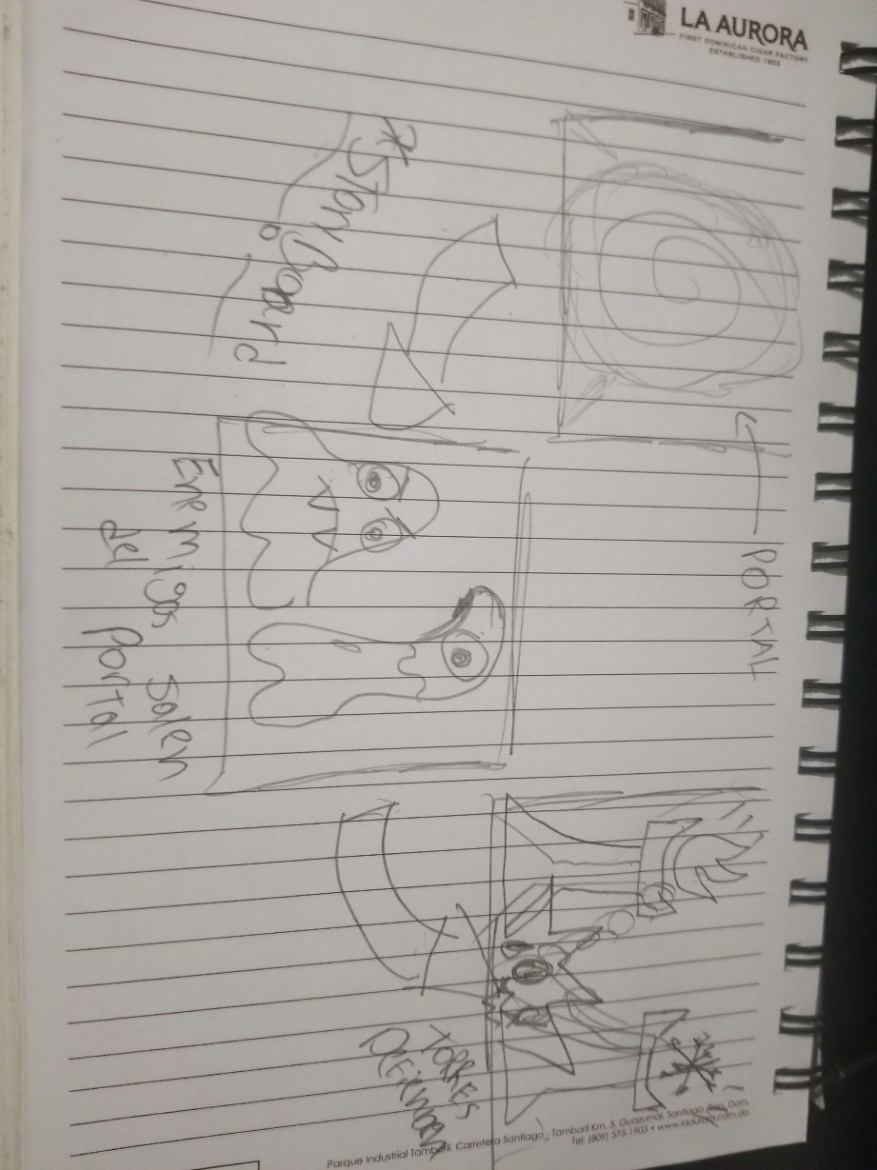 LA AURORA
FIRST DOMINICAN CIGAR FACTORY
ESTABLISHED 1903
PORTAL
*StoryBoard
Enemigos salen
del portal
TORRES
Parque Industrial Tamboril, Carretera Santiago - Tamboril Km. 5, Guazumal, Santiago, Rep. Dom.
Tel: (809) 575-1903 • www.laaurora.com.do